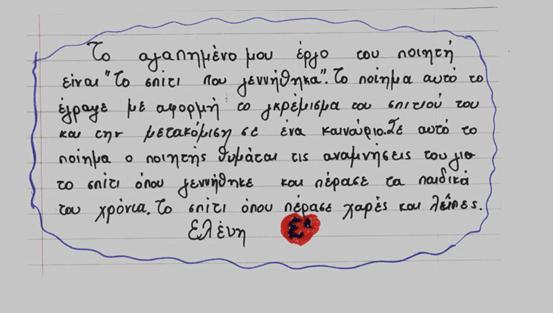 Το αγαπημένο μου έργο του ποιητή
είναι "Το σπίτι που γεννήθηκα". Το ποίημα αυτό το
έγραψε με αφορμή το γκρέμισμα του σπιτιού του
και την μετακόμιση σε ένα καινούριο. Σε αυτό το
ποίημα ο ποιητής θυμάται τις αναμνήσεις του για
το σπίτι όπου γεννήθηκε και πέρασε τα παιδικά
του χρόνια. Το σπίτι όπου πέρασε χαρές και λύπες.
Ελένη Ε1